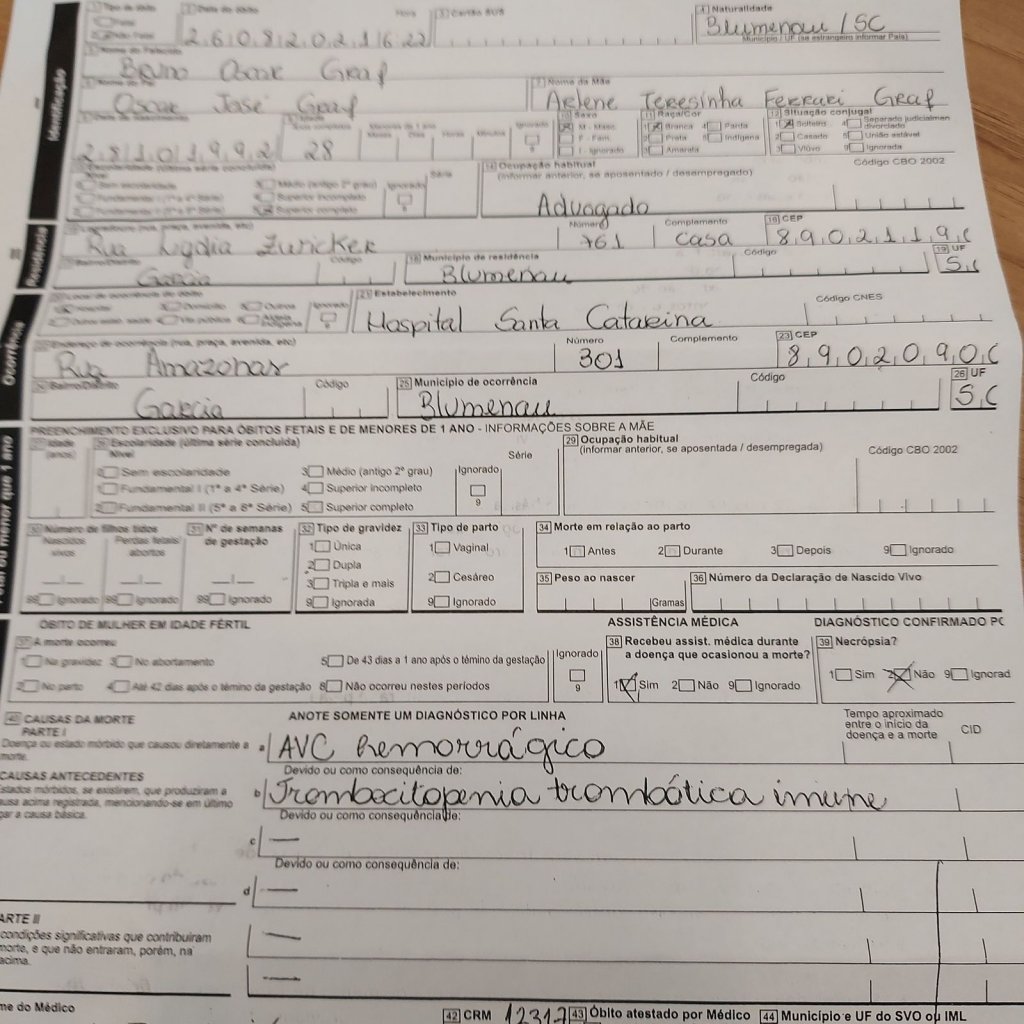 1 Tipo de óbito 2 Data do óbito Hora 3 Cartão SUS 4 Naturalidade
2 6 0 8 2 0 2 1 6:22 Blumenau / SC
Município / UF (se estrangeiro informar País)
5 Nome do Falecido
Bruno Oscar Graf
6 Nome do Pai 7 Nome da Mãe
Oscar José Graf Arlene Teresinha Ferrari Graf
Data de nascimento Idade 10 Sexo 11 Raça/Cor 12 Situação conjugal
Anos completos Menores de 1 ano Ignorado M - Masc. 1 Branca 4 Parda 1 Solteiro 4 Separado judicialmen
Meses Dias Horas Minutos F - Fem. 2 Preta 5 Indígena 2 Casado divorciado 5 União estável
2 8 1 0 1 9 9 2 28 I - Ignorado 3 Amarela 3 Viúvo 9 Ignorada
Escolaridade (última série concluída) Série 14 Ocupação habitual Código CBO 2002
(informar anterior, se aposentado / desempregado)
Sem escolaridade 3 Médio (antigo 2º grau) Ignorado
Fundamental I (1ª a 4ª Série) 4 Superior incompleto 9
Fundamental II (5ª a 8ª Série) 5 Superior completo Advogado
Logradouro (rua, praça, avenida, etc) Número Complemento 16 CEP
Rua Lydia Zuncker 761 casa 8 9 0 2 1 1 9
Bairro/Distrito Código 18 Município de residência Código 19 UF
Garcia Blumenau S C
Local de ocorrência do óbito Ignorado 21 Estabelecimento Código CNES
Hospital 3 Domicílio 5 Outros
2 Outros estab. saúde 4 Via pública 6 Aldeia Indígena 9 Hospital Santa Catarina
Endereço de ocorrência (rua, praça, avenida, etc) Número Complemento 23 CEP
Rua Amazonas 301 8 9 0 2 0 9 0
Bairro/Distrito Código 25 Município de ocorrência Código 26 UF
Garcia Blumenau S C
PREENCHIMENTO EXCLUSIVO PARA ÓBITOS FETAIS E DE MENORES DE 1 ANO - INFORMAÇÕES SOBRE A MÃE
27 Idade (anos) 28 Escolaridade (última série concluída) 29 Ocupação habitual
Nível Série (informar anterior, se aposentada / desempregada) Código CBO 2002
0 Sem escolaridade 3 Médio (antigo 2º grau) Ignorado
1 Fundamental I (1ª a 4ª Série) 4 Superior incompleto
2 Fundamental II (5ª a 8ª Série) 5 Superior completo 9
30 Número de filhos tidos 31 Nº de semanas de gestação 32 Tipo de gravidez 33 Tipo de parto 34 Morte em relação ao parto
Nascidos vivos Perdas fetais/ abortos 1 Única 1 Vaginal 1 Antes 2 Durante 3 Depois 9 Ignorado
2 Dupla
3 Tripla e mais 2 Cesáreo 35 Peso ao nascer 36 Número da Declaração de Nascido Vivo
99 Ignorado 99 Ignorado 99 Ignorado 9 Ignorada 9 Ignorado Gramas
ÓBITO DE MULHER EM IDADE FÉRTIL ASSISTÊNCIA MÉDICA DIAGNÓSTICO CONFIRMADO PO
37 A morte ocorreu 38 Recebeu assist. médica durante a doença que ocasionou a morte? 39 Necrópsia?
1 Na gravidez 3 No abortamento 5 De 43 dias a 1 ano após o témino da gestação Ignorado
2 No parto 4 Até 42 dias após o témino da gestação 8 Não ocorreu nestes períodos 9 1 Sim 2 Não 9 Ignorado 1 Sim 2 Não 9 Ignorad
40 CAUSAS DA MORTE ANOTE SOMENTE UM DIAGNÓSTICO POR LINHA Tempo aproximado entre o início da doença e a morte CID
PARTE I
Doença ou estado mórbido que causou diretamente a morte. a AVC hemorrágico
Devido ou como consequência de:
CAUSAS ANTECEDENTES
stados mórbidos, se existirem, que produziram a ausa acima registrada, mencionando-se em último gar a causa básica. b Trombocitopenia trombótica imune
Devido ou como consequência de:
c —
Devido ou como consequência de:
d —
ARTE II
condições significativas que contribuiram —
morte, e que não entraram, porém, na
acima. —
me do Médico 42 CRM 12317 43 Óbito atestado por Médico 44 Município e UF do SVO ou IML
Identificação
Residência
Ocorrência
Fetal ou menor que 1 ano